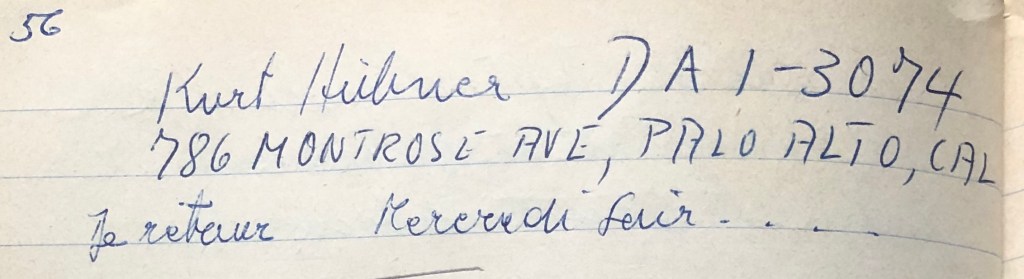 56
Kurt Hübner DA 1-3074
786 MONTROSE AVE, PALO ALTO, CAL
Je retour Mercredi soir. . . .